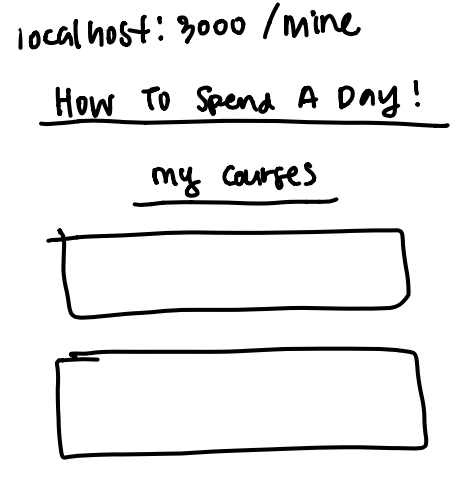 localhost: 3000 /mine
How To Spend A Day!
my courses